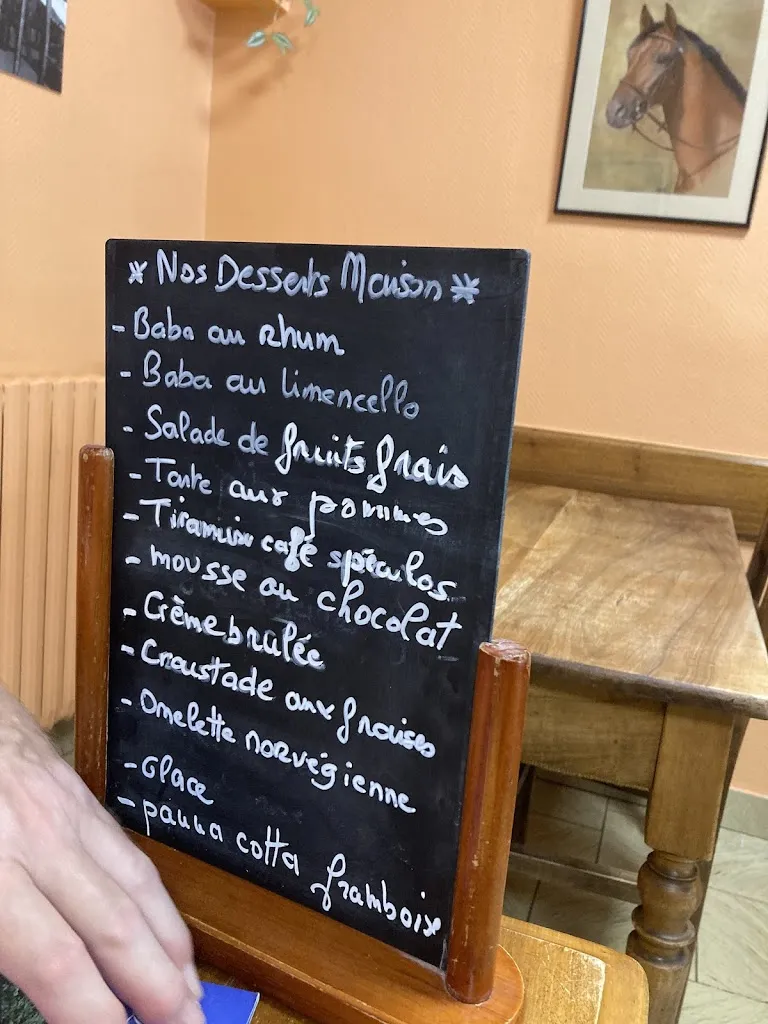 * Nos Desserts Maison *
- Baba au Rhum
- Baba au limencello
- Salade de fruits frais
- Tarte aux pommes
- Tiramisu café spéculos
- mousse au chocolat
- Crème brulée
- Croustade aux fraises
- Omelette norvégienne
- Glace
- panna cotta framboise